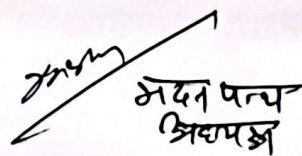 मदन पन्थ
अध्यक्ष